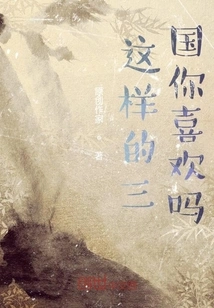 这样的三
国你喜欢吗
著